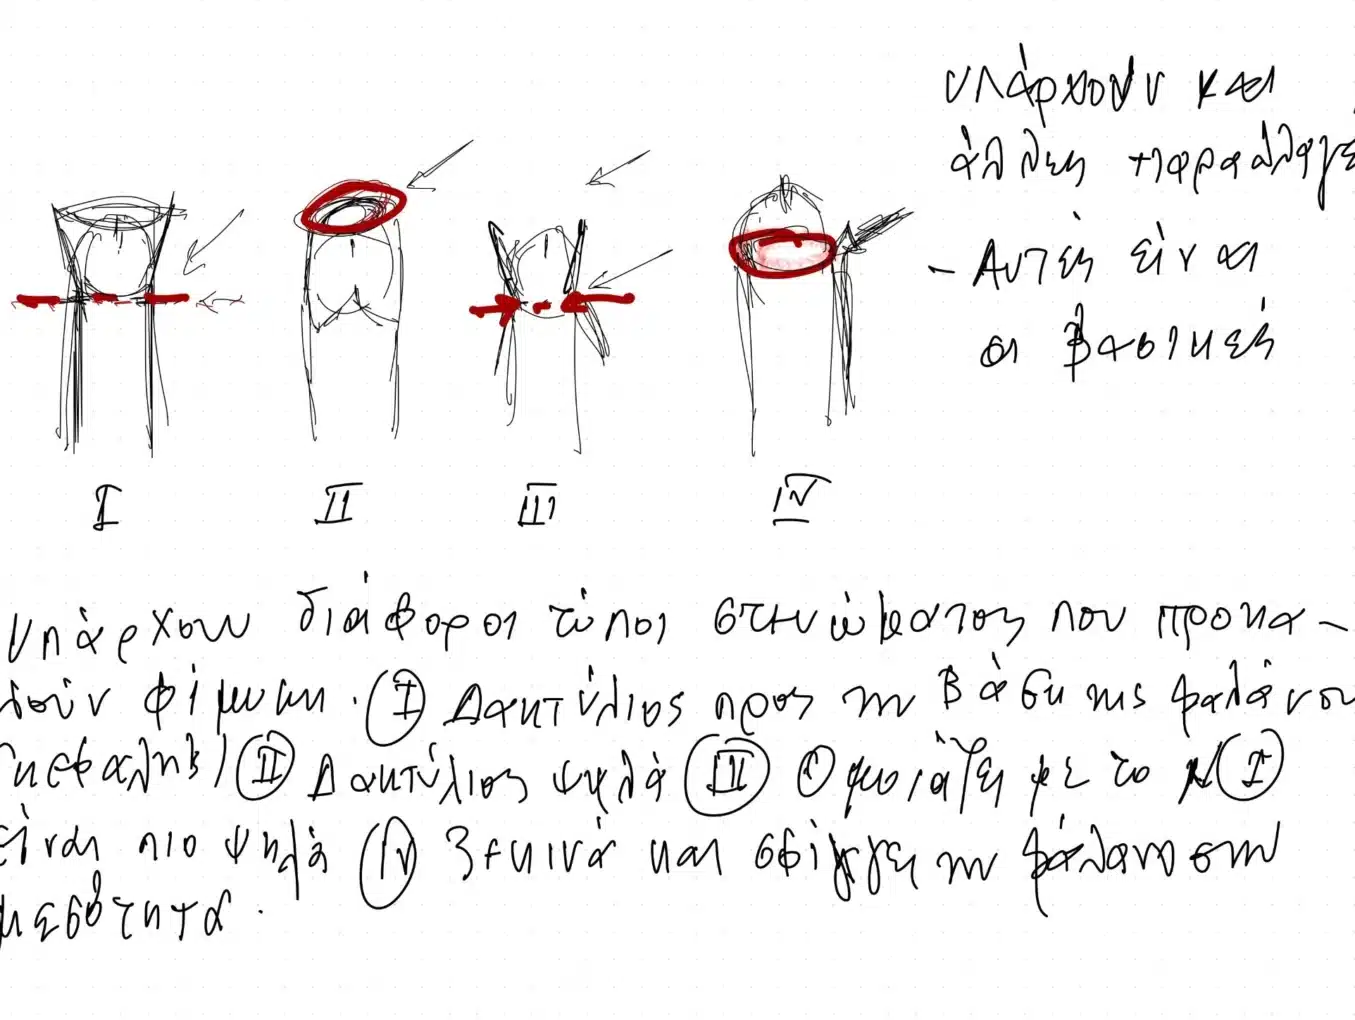 υπάρχουν και
άλλες παραλλαγέ
- Αυτές είναι
οι βασικές
I II III IV
Υπάρχουν διάφοροι τύποι στενώματος που προκα-
λούν φίμωση. (I) Δακτύλιος προς τη βάση της βαλάνου
(κεφαλής) (II) Δακτύλιος ψηλά (III) Ομοιάζει με το (I)
είναι πιο ψηλά (IV) Ξεκινά και σφίγγει τη βάλανο στην
μεσότητα.